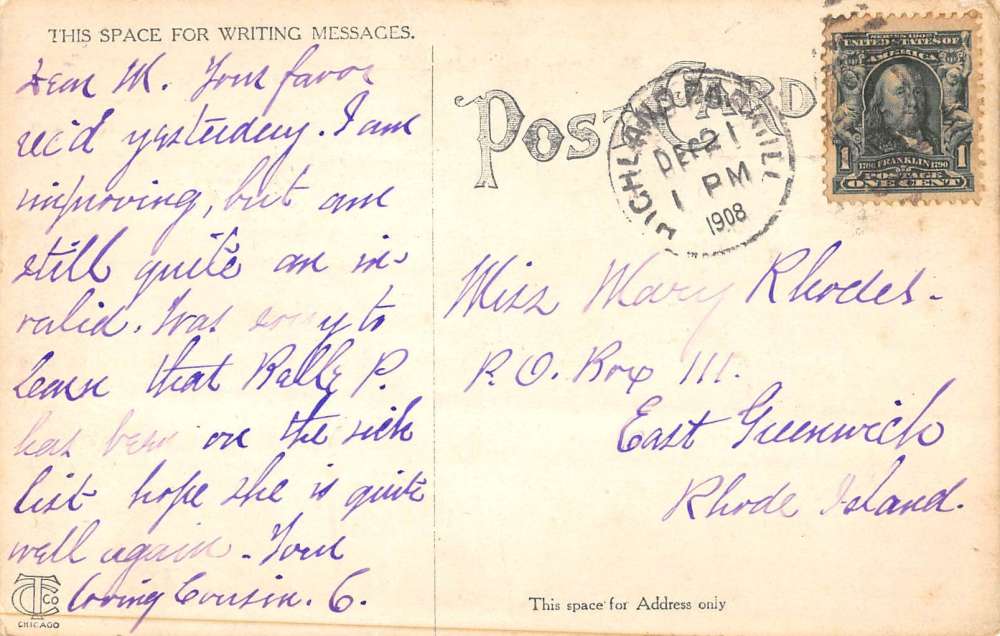 THIS SPACE FOR WRITING MESSAGES.
Dear M. Your favor
rec'd yesterday. I am
improving, but am
still quite an in-
valid. Was sorry to
learn that Kelly P.
has been on the sick
list hope she is quite
well again. Your
loving Cousin. C.
CTCo
CHICAGO
POST CARD
HIGHLAND PARK, ILL.
DEC 21
1 PM
1908
SERIES 1902
UNITED STATES OF
AMERICA
1 1706 FRANKLIN 1790 1
POSTAGE
ONE CENT
Miss Mary Rhodes.
P.O. Box 111.
East Greenwich
Rhode Island.
This space for Address only